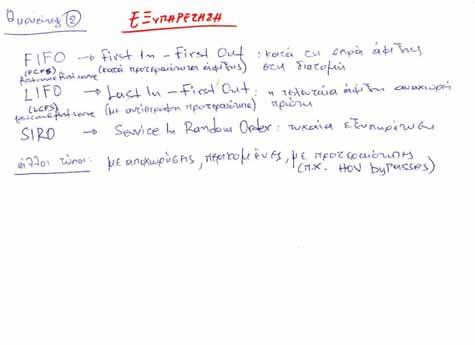 ② ΕΞυπηρέτηση
FIFO → First In - First Out : κατά τη σειρά άφιξης
(FCFS) (κατά προτεραιότητα άφιξης) στη διατομή
first come first serve
LIFO → Last In - First Out : η τελευταία άφιξη αναχωρεί
(LCFS) (με αντίστροφη προτεραιότητα) πρώτη
first serve
SIRO → Service In Random Order : τυχαία εξυπηρέτηση
άλλοι τύποι : με αποχωρήσεις, περικομμένες, με προτεραιότητες
(π.χ. HOV bypasses)